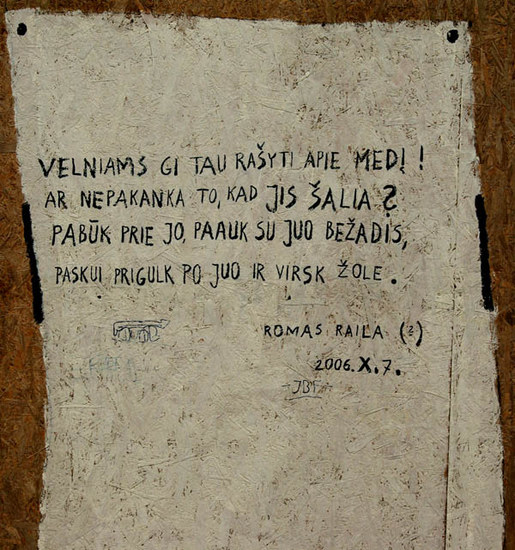 VELNIAMS GI TAU RAŠYTI APIE MEDĮ!
AR NEPAKANKA TO, KAD JIS ŠALIA?
PABŪK PRIE JO, PAAUK SU JUO BEŽADIS,
PASKUI PRIGULK PO JUO IR VIRSK ŽOLE.
ROMAS RAILA (2)
2006.X.7.